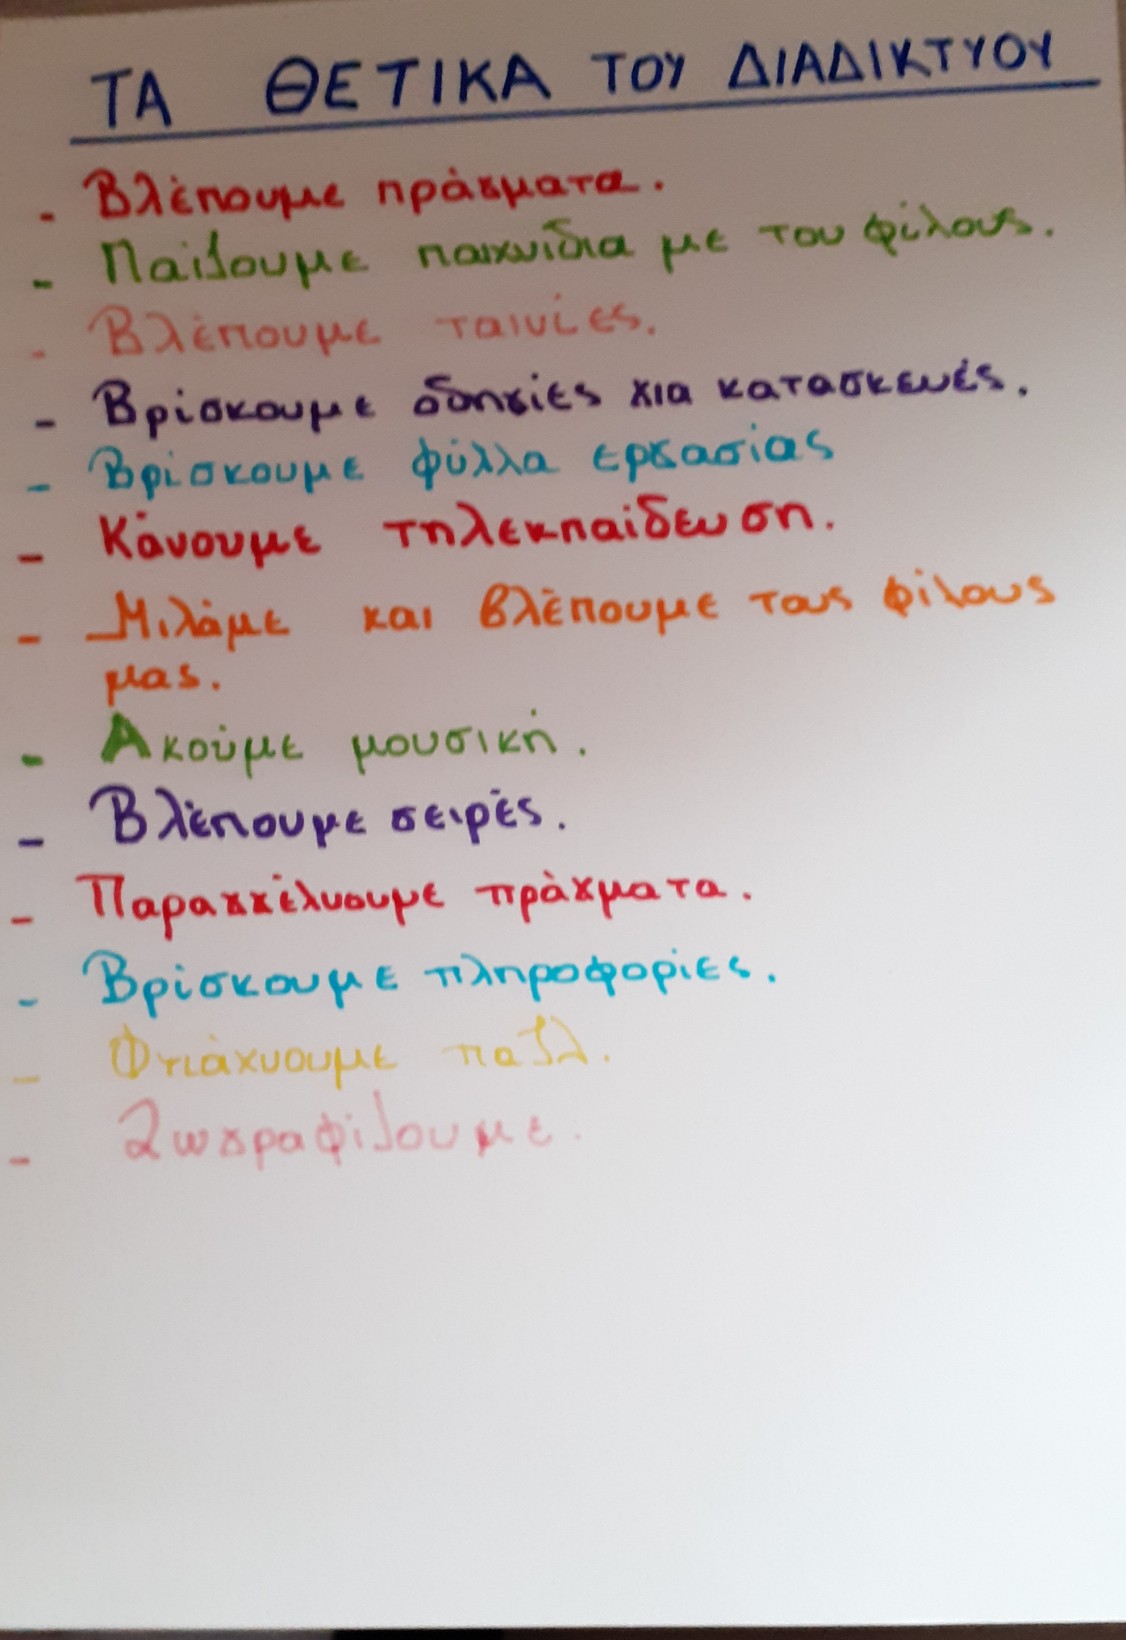 ΤΑ ΘΕΤΙΚΑ ΤΟΥ ΔΙΑΔΙΚΤΥΟΥ
- Βλέπουμε πράγματα.
- Παίζουμε παιχνίδια με του φίλους.
- Βλέπουμε ταινίες.
- Βρίσκουμε οδηγίες για κατασκευές.
- Βρίσκουμε φύλλα εργασίας
- Κάνουμε τηλεκπαίδευση.
- Μιλάμε και βλέπουμε τους φίλους
μας.
- Ακούμε μουσική.
- Βλέπουμε σειρές.
- Παραγγέλνουμε πράγματα.
- Βρίσκουμε πληροφορίες.
- Φτιάχνουμε παζλ.
- Ζωγραφίζουμε.